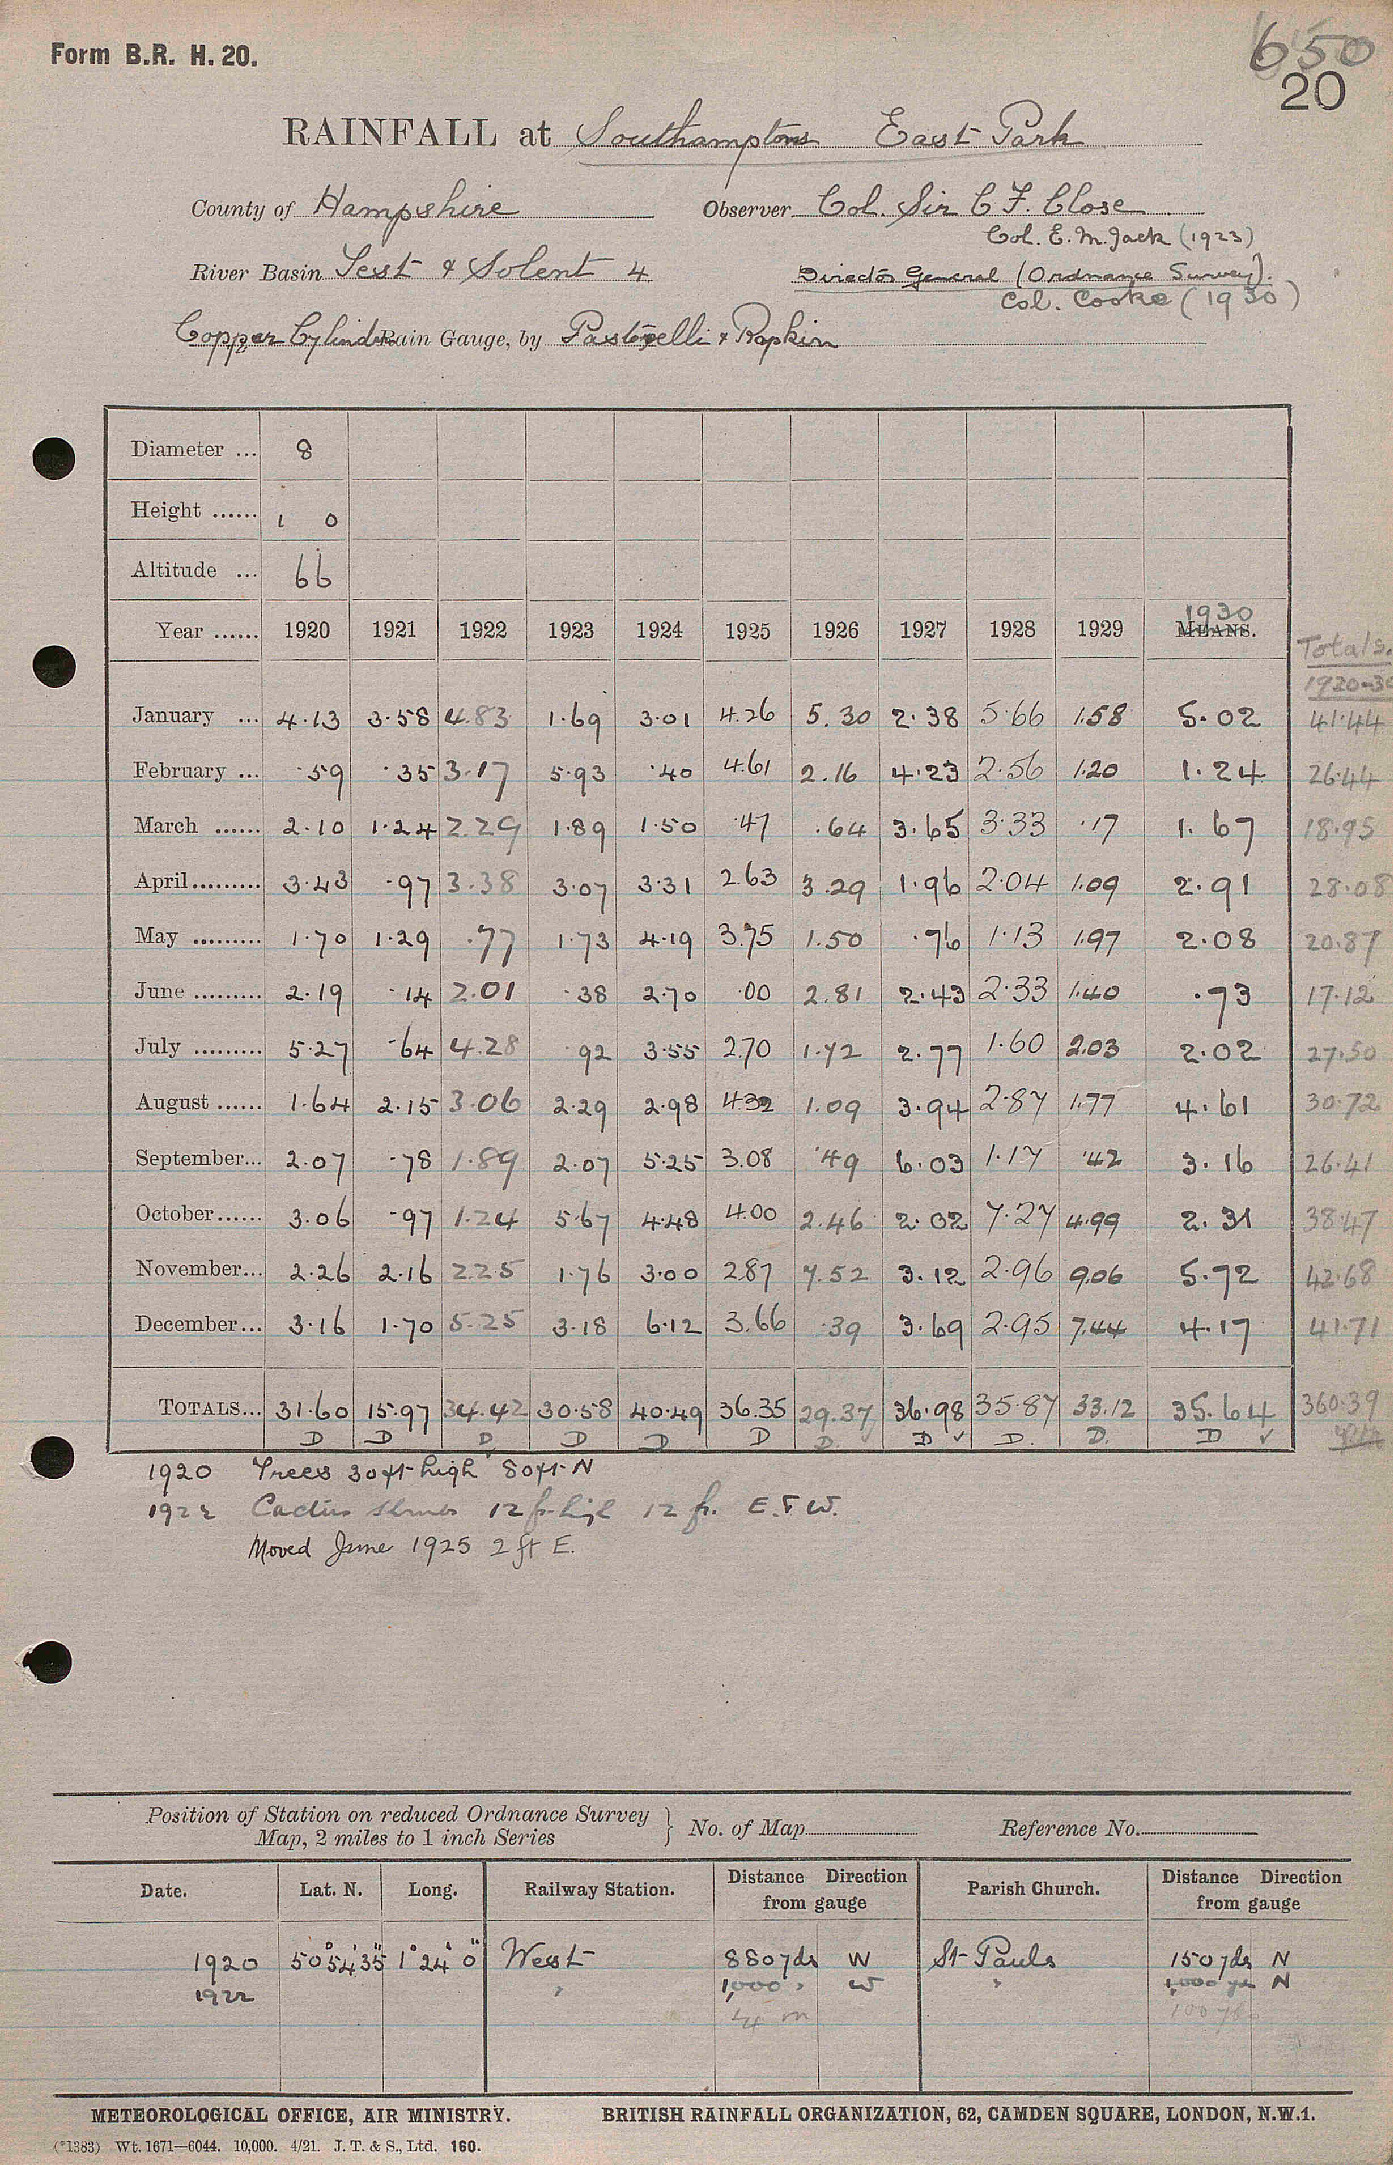 Form B.R. H. 20.
650
20
RAINFALL at Southampton East Park
County of Hampshire Observer Col. Sir C F. Close
Col. E. M. Jack (1923)
River Basin Test & Solent 4 Director General (Ordnance Survey).
Col. Cooke (1930)
Copper Cylinder Rain Gauge, by Pastorelli & Rapkin
Diameter ... 8
Height ...... 1 0
Altitude ... 66
Year ...... 1920 1921 1922 1923 1924 1925 1926 1927 1928 1929 1930 MEANS. Totals. 1920-30
January ... 4.13 3.58 4.83 1.69 3.01 4.26 5.30 2.38 5.66 1.58 5.02 41.44
February ... .59 .35 3.17 5.93 .40 4.61 2.16 4.23 2.56 1.20 1.24 26.44
March ...... 2.10 1.24 2.29 1.89 1.50 .47 .64 3.65 3.33 .17 1.67 18.95
April......... 3.43 .97 3.38 3.07 3.31 2.63 3.29 1.96 2.04 1.09 2.91 28.08
May ......... 1.70 1.29 .77 1.73 4.19 3.75 1.50 .76 1.13 1.97 2.08 20.87
June ......... 2.19 .14 2.01 .38 2.70 .00 2.81 2.43 2.33 1.40 .73 17.12
July ......... 5.27 .64 4.28 .92 3.55 2.70 1.72 2.77 1.60 2.03 2.02 27.50
August ...... 1.64 2.15 3.06 2.29 2.98 4.32 1.09 3.94 2.87 1.77 4.61 30.72
September... 2.07 .78 1.89 2.07 5.25 3.08 .49 6.03 1.17 .42 3.16 26.41
October...... 3.06 .97 1.24 5.67 4.48 4.00 2.46 2.02 7.27 4.99 2.31 38.47
November... 2.26 2.16 2.25 1.76 3.00 2.87 7.52 3.12 2.96 9.06 5.72 42.68
December... 3.16 1.70 5.25 3.18 6.12 3.66 .39 3.69 2.95 7.44 4.17 41.71
TOTALS... 31.60 15.97 34.42 30.58 40.49 36.35 29.37 36.98 35.87 33.12 35.64 360.39
D D D D D D D. ✓ D ✓ D. D. D ✓
1920 Trees 30ft high 80ft N
1922 Cactus shrubs 12 ft high 12 ft. E. & W.
Moved June 1925 2 ft E.
Position of Station on reduced Ordnance Survey
Map, 2 miles to 1 inch Series } No. of Map Reference No.
Date. Lat. N. Long. Railway Station. Distance Direction from gauge Parish Church. Distance Direction from gauge
1920 50°54'35" 1°24'0" West 880yds W St Pauls 150yds N
1922 " 1,000 " W " 1,000 yds N
1/4 m 100 yds
METEOROLOGICAL OFFICE, AIR MINISTRY. BRITISH RAINFALL ORGANIZATION, 62, CAMDEN SQUARE, LONDON, N.W.1.
(*1383) Wt. 1671—6044. 10,000. 4/21. J. T. & S., Ltd. 160.